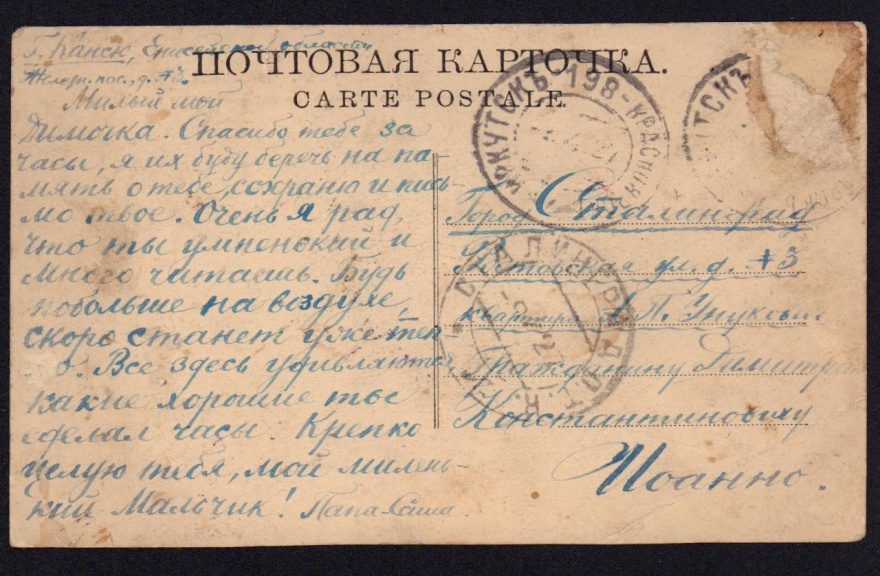 ПОЧТОВАЯ КАРТОЧКА.
CARTE POSTALE.
Г. Канск, Енисейской области
Милый мой
Димочка. Спасибо тебе за
часы, я их буду беречь на па-
мять о тебе, сохраню и пись-
мо твое. Очень я рад,
что ты умненький и
много читаешь. Будь
побольше на воздухе,
скоро станет уже теп-
о. Все здесь удивляются
какие хорошие ты
сделал часы. Крепко
целую тебя, мой милень-
кий Мальчик! Папа-Саша.
Город Сталинград
ул. д. №3
квартира А.П.
Гражданину Димитри
Константиновичу
Иоанно.
ИРКУТСКЪ 198 - КРАСНОЯ
УТСКЪ
СТАЛИНГРАД